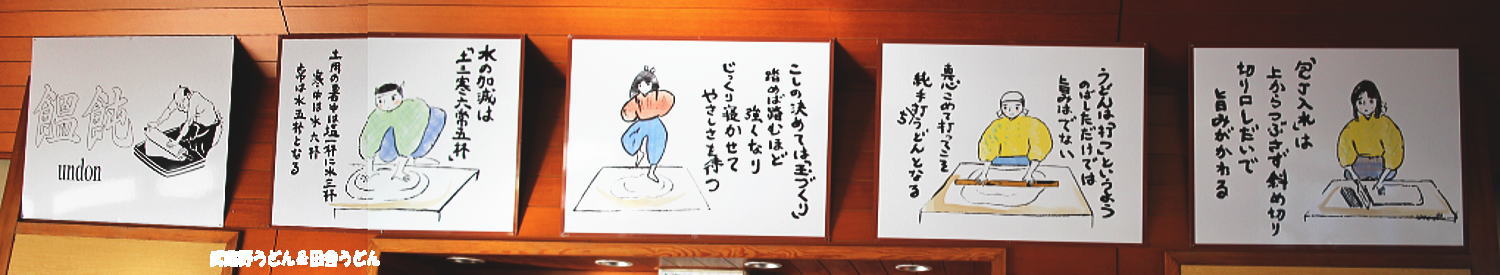 饂飩
undon
水の加減は
「土三寒六常五杯」
土用の暑中は塩一杯に水三杯
寒中は水六杯
常は水五杯となる
こしの決めては「玉づくり」
踏めば踏むほど
強くなり
じっくり寝かせて
やさしさを待つ
うどんは「打つ」というよう
のばしただけでは
旨みはでない
真心こめて打ってこそ
純手打ちうどんとなる
「包丁入れ」は
上からつぶさず斜め切り
切り口しだいで
旨みがかわる
武蔵野うどん&田舎うどん